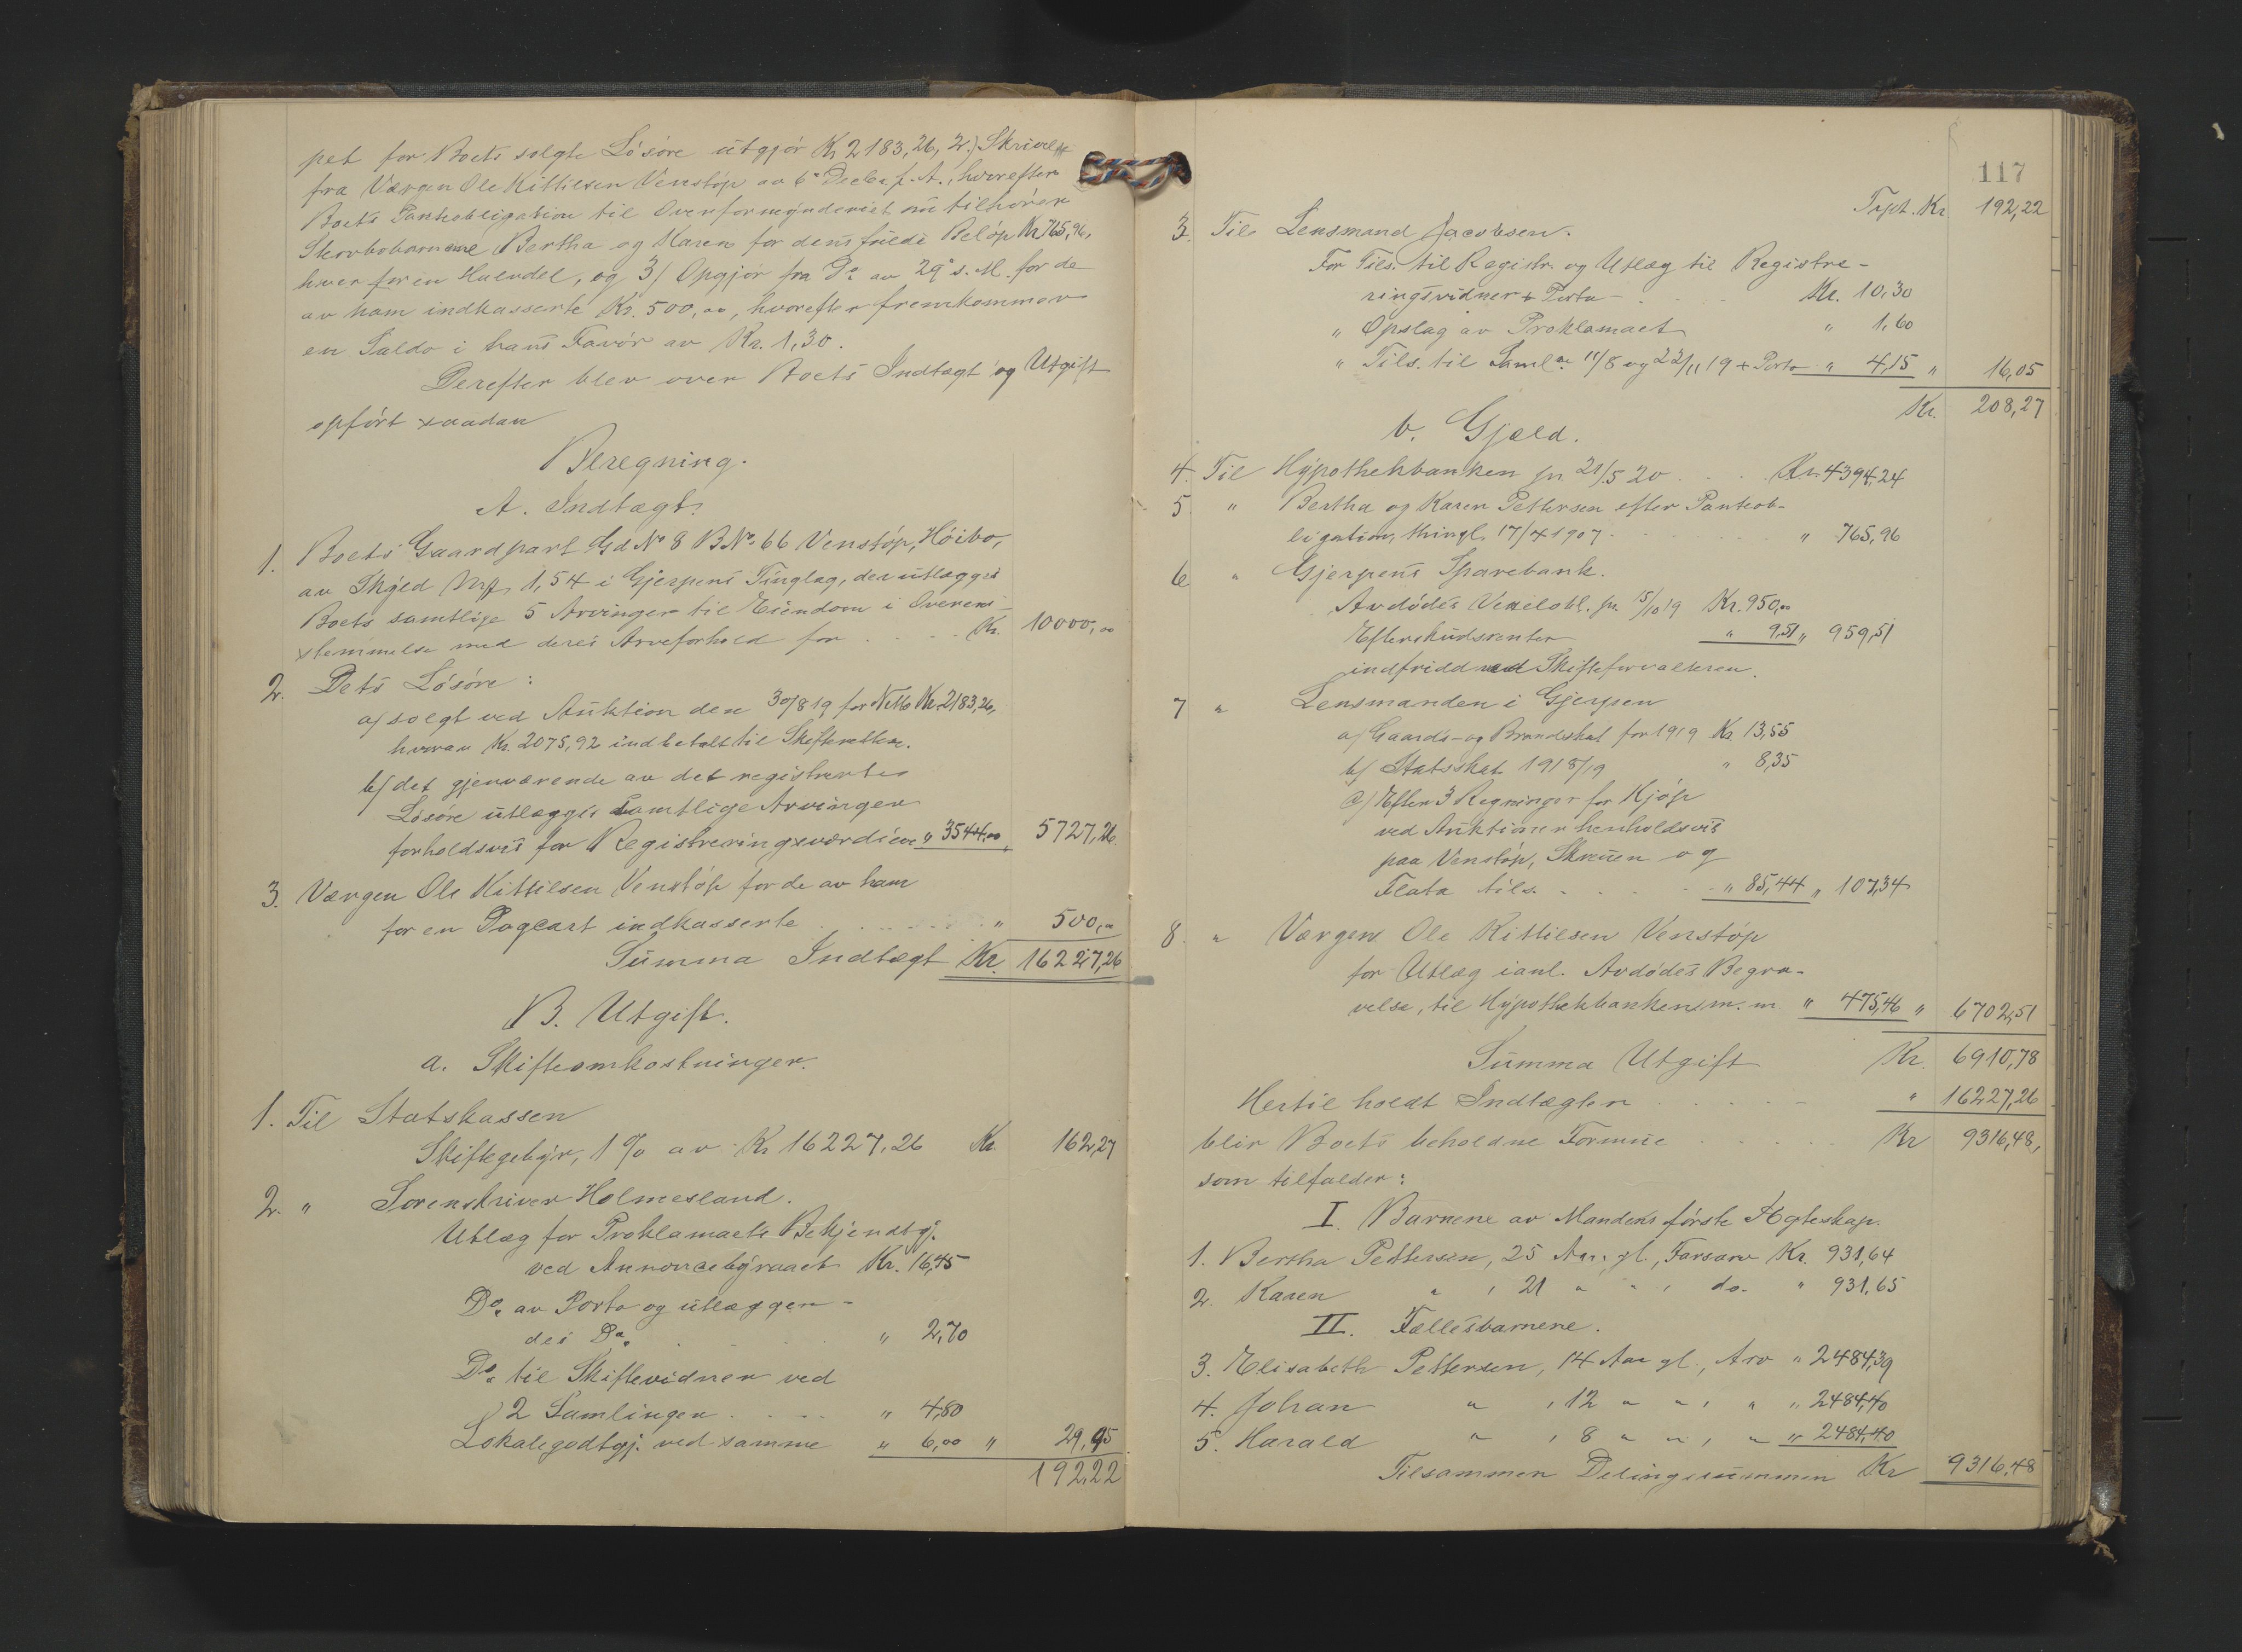 pet for Boets solgte Løsøre utgjør Kr 2183,26, 2) Skrivelse
fra Værgen Ole Kittilsen Venstøp av 6te Decbr f. A., hvorefter
Boets Panteobligation til Overformynderiet nu tilhører
Stervbobarnene Bertha og Karen for dens fulde Beløp Kr 765,96,
hver for en Halvdel, og 3/ Opgjør fra Do av 29de s. M. for de
av ham indkasserte Kr. 500,00, hvorefter fremkommer
en Saldo i hans Favør av Kr. 1,30.
Derefter blev over Boets Indtægt og Utgift
opført saadan
Beregning.
A. Indtægt.
1. Boets Gaardpart Gd No 8 B.No 66 Venstøp, Høibo,
av Skyld Mrk 1,54 i Gjerpens Tinglag, der utlægges
Boets samtlige 5 Arvinger til Eiendom i Overens-
stemmelse med deres Arveforhold for . . . . Kr. 10000,00
2. Dets Løsøre:
a/ solgt ved Auktion den 30/8 19 for Netto Kr. 2183,26,
hvorav Kr. 2075,92 indbetalt til Skifteretten.
b/ det gjenværende av det registrerte
Løsøre utlægges samtlige Arvinger
forholdsvis for Registreringsværdien " 3544,00 " 5727,26
3. Værgen Ole Kittilsen Venstøp for de av ham
for en Pageart indkasserte . . . . . . " 500,00
Summa Indtægt Kr. 16227,26
B. Utgift.
a. Skifteomkostninger.
1. Til Statskassen
Skiftegebyr, 1 % av Kr 16227,26 Kr. 162,27
2. " Sorenskriver Holmesland.
Utlæg for Proklamaets Bekjendtgj.
ved Annoncebyraaet Kr. 16,45
Do. av Porto og utlægger-
des Do. " 2,70
Do. til Skiftevidner ved
2 Samlinger . . . . " 4,80
Lokalegodtgj. ved samme " 6,00 " 29,95
192,22
117
Trpt. Kr 192,22
3. Til Lensmand Jacobsen.
For Tils. til Registr. og Utlæg til Registre-
ringsvidner + Porto - . . . Kr. 10,30
" Opslag av Proklamaet " 1,60
" Tils. til Saml.er 11/8 og 22/11 19 + Porto " 4,15 " 16,05
Kr. 208,27
b. Gjæld.
4. Til Hypothekbanken pr. 21/5 20 . . . . Kr. 4394,24
5. " Bertha og Karen Pettersen efter Panteob-
ligation, thingl. 17/4 1907 . . . . . . " 765,96
6 " Gjerpens Sparebank.
Avdødes Vexelobl. pr. 15/10 19 Kr. 950,00
Efterskudsrenter " 9,51 " 959,51
indfridd ved Skifteforvalteren.
7 " Lensmanden i Gjerpen
a/ Gaards- og Brandskat for 1919 Kr. 13,55
b/ Statsskat 1918/19 " 8,35
c/ Efter 3 Regninger for Kjøp
ved Auktioner henholdsvis
paa Venstøp, Skruen og
Flata tils. . . . . . " 85,44 " 107,34
8. " Værgen Ole Kittilsen Venstøp
for Utlæg i anl. Avdødes Begra-
velse, til Hypothekbanken m. m. " 475,46 " 6702,51
Summa Utgift Kr. 6910,78
Hertil holdt Indtægten . . . . . " 16227,26
blir Boets beholdne Formue . . . . . Kr 9316,48,
som tilfalder:
I. Barnene av Mandens første Ægteskap.
1. Bertha Pettersen, 25 Aar gl., Farsarv Kr. 931,64
2. Karen " , 21 " " , do. " 931,65
II. Fællesbarnene.
3. Elisabeth Pettersen, 14 Aar gl., Arv " 2484,39
4. Johan " , 12 " " , " " 2484,40
5. Harald " , 8 " " , " " 2484,40
Tilsammen Delingssummen Kr 9316,48